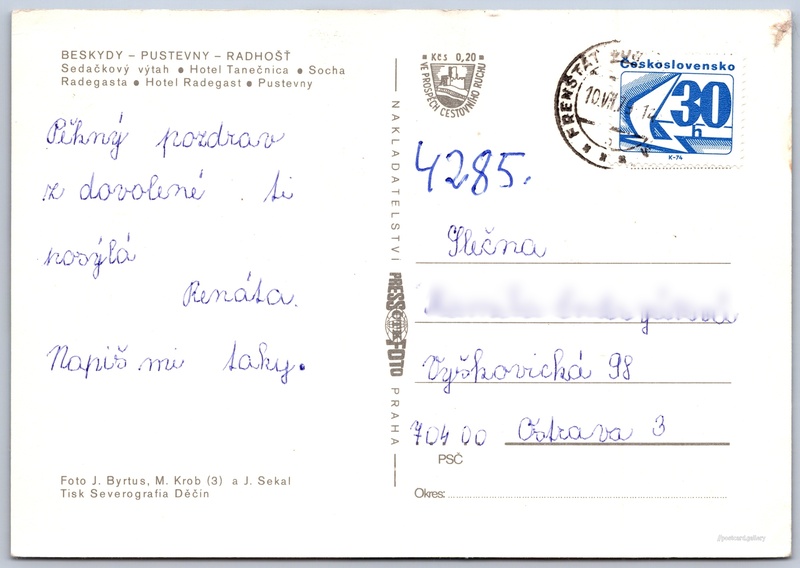 BESKYDY – PUSTEVNY – RADHOŠŤ
Sedačkový výtah ● Hotel Tanečnica ● Socha
Radegasta ● Hotel Radegast ● Pustevny
Pěkný pozdrav
z dovolené ti
posýlá
Renáta.
Napiš mi taky.
Foto J. Byrtus, M. Krob (3) a J. Sekal
Tisk Severografia Děčín
NAKLADATELSTVÍ
PRESSFOTO
PRAHA
Kčs 0,20
VE PROSPĚCH CESTOVNÍHO RUCHU
FRENŠTÁT
10.VII.
Československo
30
h
K-74
4285.
Slečna
Výškovická 98
704 00 Ostrava 3
PSČ
Okres: